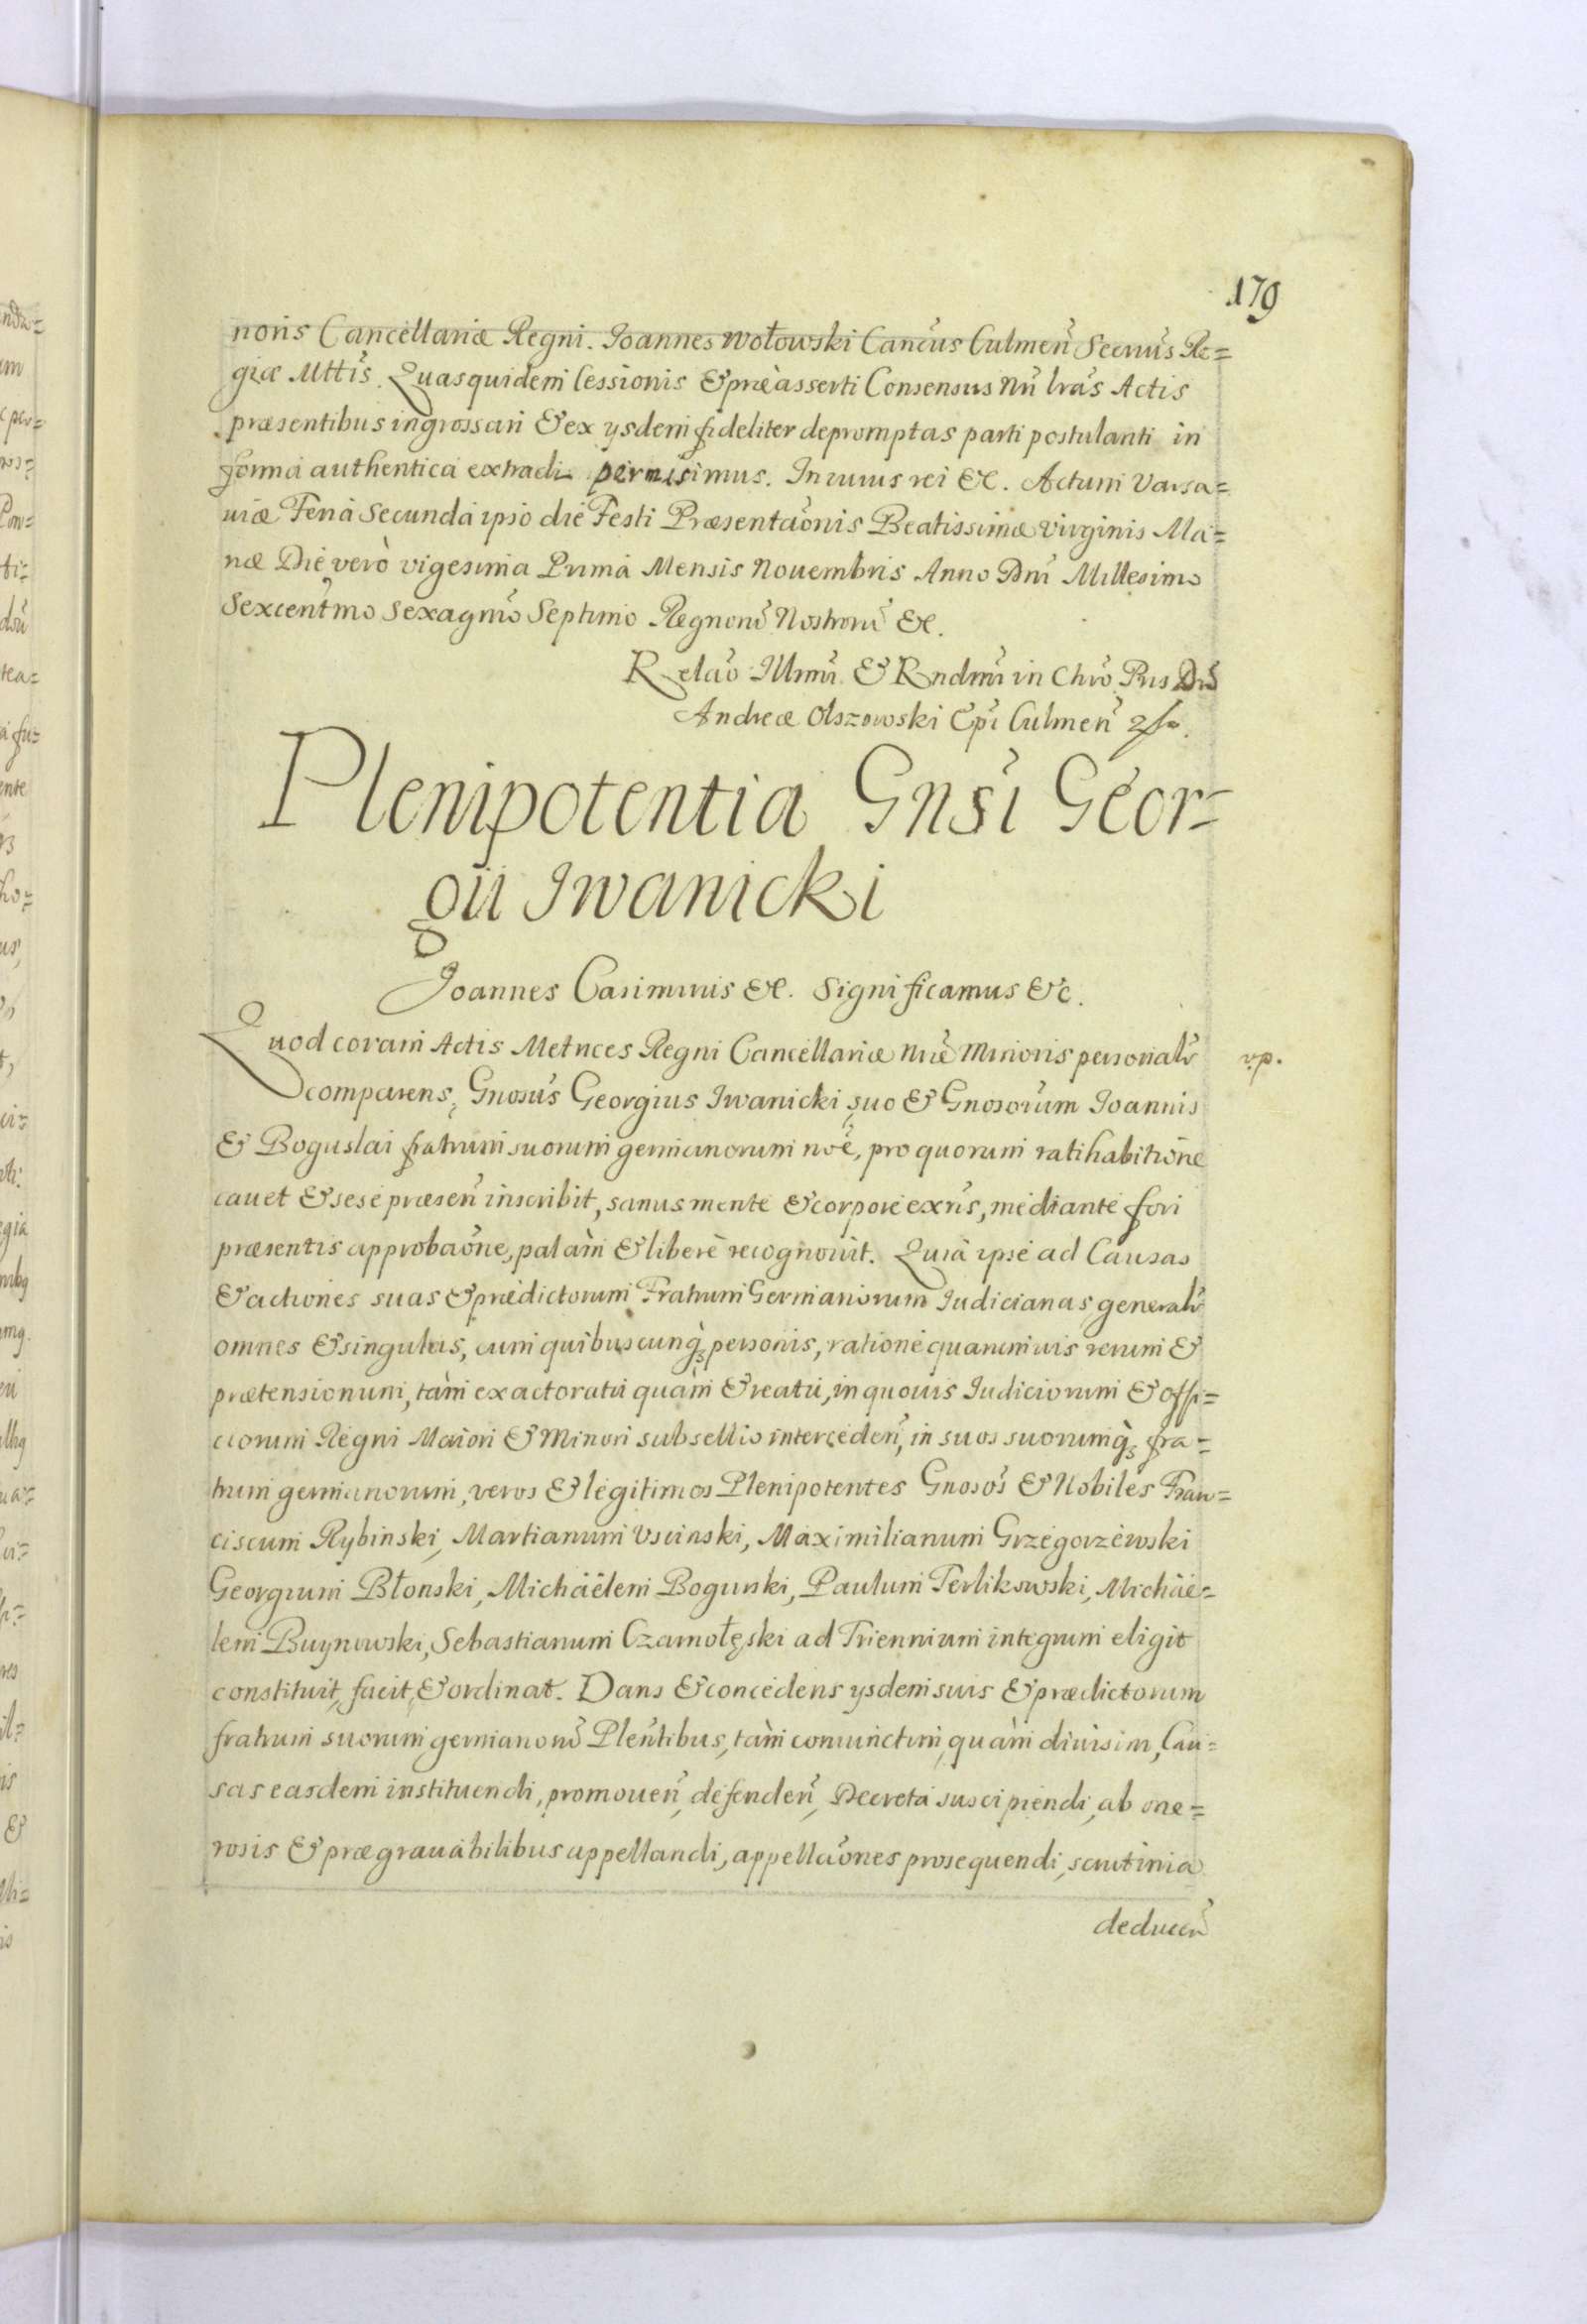 179
noris Cancellariæ Regni. Joannes Wołowski Canc̃us Culmeñ Secrius Re=
giæ Mttis. Quasquidem Cessionis & præasserti Consensus Nri lrãs Actis
præsentibus ingrossari & ex ysdem fideliter depromptas parti postulanti in
forma authentica extradi permisimus. In cuius rei &c. Actum Varsa=
uiæ Feria Secunda ipso die Festi Præsentãonis Beatissimæ Virginis Ma=
riæ Die verò vigesima Prima Mensis Nouembris Anno Dni Millesimo
Sexcentmo Sexagmo Septimo Regnorũ Nostrorũ &c.
Relaõ Illmi & Rndmi in Chrõ Pris Dni
Andreæ Olszowski Epi Culmeñ
Plenipotentia Gnsi Geor=
gii Iwanicki
Joannes Casimirus &c. Significamus &c.
Quod coram Actis Metrices Regni Cancellariæ Nræ Minoris personalr v.p.
comparens, Gnosus Georgius Iwanicki suo & Gnosorum Joannis
& Boguslai fratrum suorum germanorum noẽ, pro quorum ratihabitiõne
cauet & sese præseñ inscribit, sanus mente & corpore exñs, mediante fori
præsentis approbaõne, palàm & liberè recognouit. Quia ipse ad Causas
& actiones suas & prædictorum Fratrum Germanorum Iudiciarias generalr
omnes & singulas, cum quibuscunq̀ personis, ratione quarumuis rerum &
prætensionum, tàm ex actoratu quàm & reatu, in quouis Iudiciorum & offi=
ciorum Regni Maiori & Minori subsellio intercedeñ, in suos suorumq̀ fra=
trum germanorum, veros & legitimos Plenipotentes Gnosos & Nobiles Fran=
ciscum Rybinski, Martianum Uscinski, Maximilianum Grzegorzewski
Georgium Błonski, Michäelem Bogurski, Paulum Terlikowski, Michäe=
lem Buynowski, Sebastianum Czarnołęski ad Triennium integrum eligit
constituit, facit, & ordinat. Dans & concedens ysdem suis & prædictorum
fratrum suorum germanorũ Pleñtibus, tàm coniunctim, quàm diuisim, Cau=
sas easdem instituendi, promoueñ, defendeñ, Decreta suscipiendi, ab one=
rosis & prægrauabilibus appellandi, appellãones prosequendi, scrutinia
deduceñ